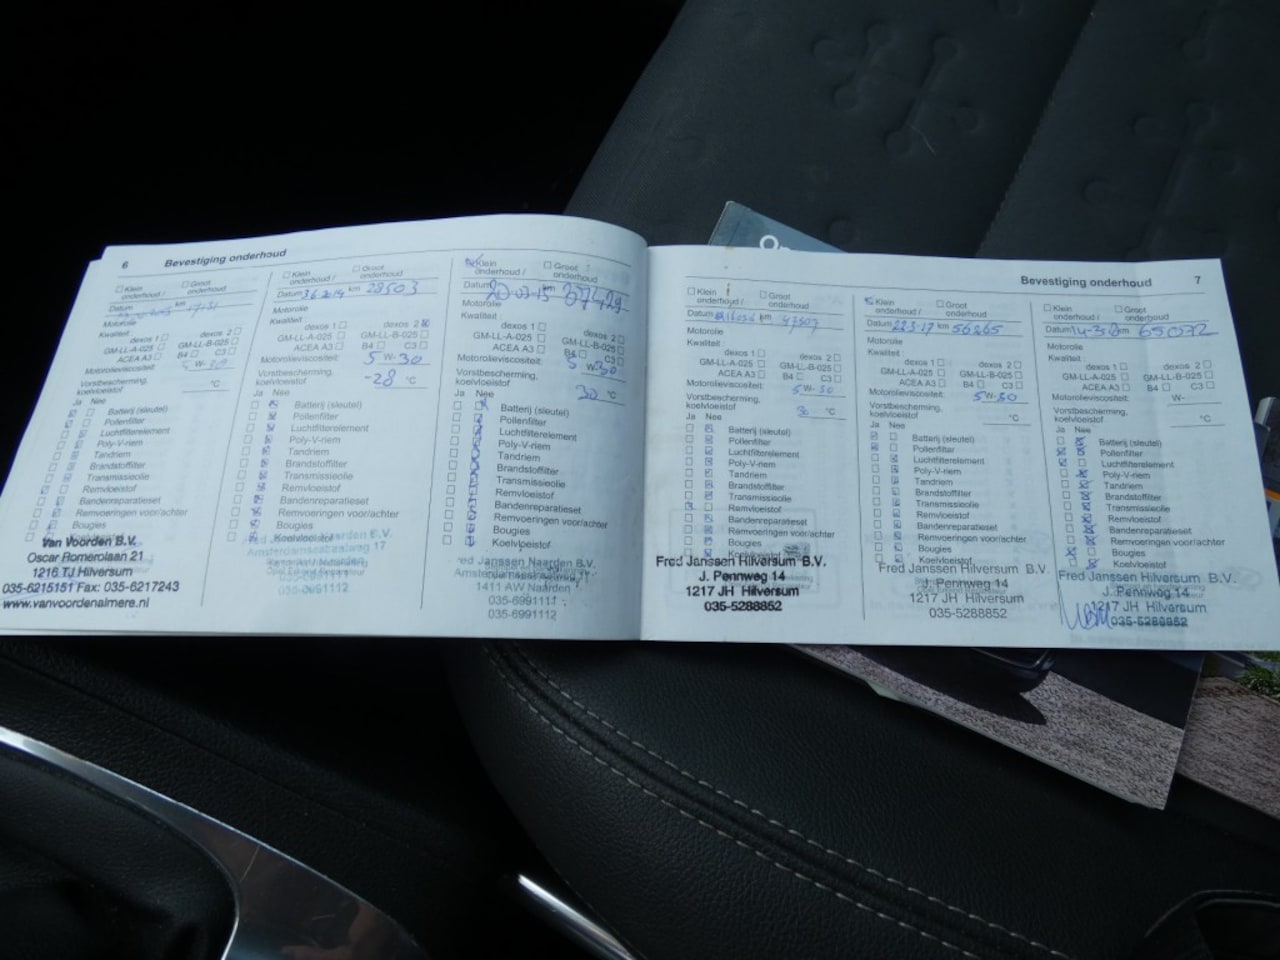 6 Bevestiging onderhoud
Klein onderhoud /
Groot onderhoud
Datum km
Motorolie
Kwaliteit:
dexos 1 dexos 2
GM-LL-A-025 GM-LL-B-025
ACEA A3 B4 C3
Motorolieviscositeit: 5 W-
Vorstbescherming, koelvloeistof °C
Ja Nee
Batterij (sleutel)
Pollenfilter
Luchtfilterelement
Poly-V-riem
Tandriem
Brandstoffilter
Transmissieolie
Remvloeistof
Bandenreparatieset
Remvoeringen voor/achter
Bougies
Van Voorden B.V.
Oscar Romerolaan 21
1216 TJ Hilversum
035-6215151 Fax: 035-6217243
www.vanvoordenalmere.nl
Klein onderhoud /
Groot onderhoud
Datum 3 6 2014 km 28503
Motorolie
Kwaliteit
dexos 1 dexos 2
GM-LL-A-025 GM-LL-B-025
ACEA A3 B4 C3
Motorolieviscositeit: 5 W- 30
Vorstbescherming, koelvloeistof -28 °C
Ja Nee
Batterij (sleutel)
Pollenfilter
Luchtfilterelement
Poly-V-riem
Tandriem
Brandstoffilter
Transmissieolie
Remvloeistof
Bandenreparatieset
Remvoeringen voor/achter
Bougies
Koelvloeistof
Klein onderhoud /
Groot onderhoud
Datum 20-03-15 km 37429
Motorolie
Kwaliteit
dexos 1 dexos 2
GM-LL-A-025 GM-LL-B-025
ACEA A3 B4 C3
Motorolieviscositeit: 5 W- 30
Vorstbescherming, koelvloeistof 30 °C
Ja Nee
Batterij (sleutel)
Pollenfilter
Luchtfilterelement
Poly-V-riem
Tandriem
Brandstoffilter
Transmissieolie
Remvloeistof
Bandenreparatieset
Remvoeringen voor/achter
Bougies
Koelvloeistof
ed Janssen Naarden B.V.
1411 AW Naarden
035-6991111
035-6991112
Bevestiging onderhoud 7
Klein onderhoud /
Groot onderhoud
Datum km
Motorolie
Kwaliteit:
dexos 1 dexos 2
GM-LL-A-025 GM-LL-B-025
ACEA A3 B4 C3
Motorolieviscositeit: 5 W- 30
Vorstbescherming, koelvloeistof 30 °C
Ja Nee
Batterij (sleutel)
Pollenfilter
Luchtfilterelement
Poly-V-riem
Tandriem
Brandstoffilter
Transmissieolie
Remvloeistof
Bandenreparatieset
Remvoeringen voor/achter
Bougies
Koelvloeistof
Fred Janssen Hilversum B.V.
J. Pennweg 14
1217 JH Hilversum
035-5288852
Klein onderhoud /
Groot onderhoud
Datum 22.3-17 km 56865
Motorolie
Kwaliteit:
dexos 1 dexos 2
GM-LL-A-025 GM-LL-B-025
ACEA A3 B4 C3
Motorolieviscositeit: 5 W- 30
Vorstbescherming, koelvloeistof °C
Ja Nee
Batterij (sleutel)
Pollenfilter
Luchtfilterelement
Poly-V-riem
Tandriem
Brandstoffilter
Transmissieolie
Remvloeistof
Bandenreparatieset
Remvoeringen voor/achter
Bougies
Koelvloeistof
Fred Janssen Hilversum B.V.
J. Pennweg 14
1217 JH Hilversum
035-5288852
Klein onderhoud /
Groot onderhoud
Datum km 65072
Motorolie
Kwaliteit:
dexos 1 dexos 2
GM-LL-A-025 GM-LL-B-025
ACEA A3 B4 C3
Motorolieviscositeit: W-
Vorstbescherming, koelvloeistof °C
Ja Nee
Batterij (sleutel)
Pollenfilter
Luchtfilterelement
Poly-V-riem
Tandriem
Brandstoffilter
Transmissieolie
Remvloeistof
Bandenreparatieset
Remvoeringen voor/achter
Bougies
Koelvloeistof
Fred Janssen Hilversum B.V.
J. Pennweg 14
1217 JH Hilversum
035-5288852